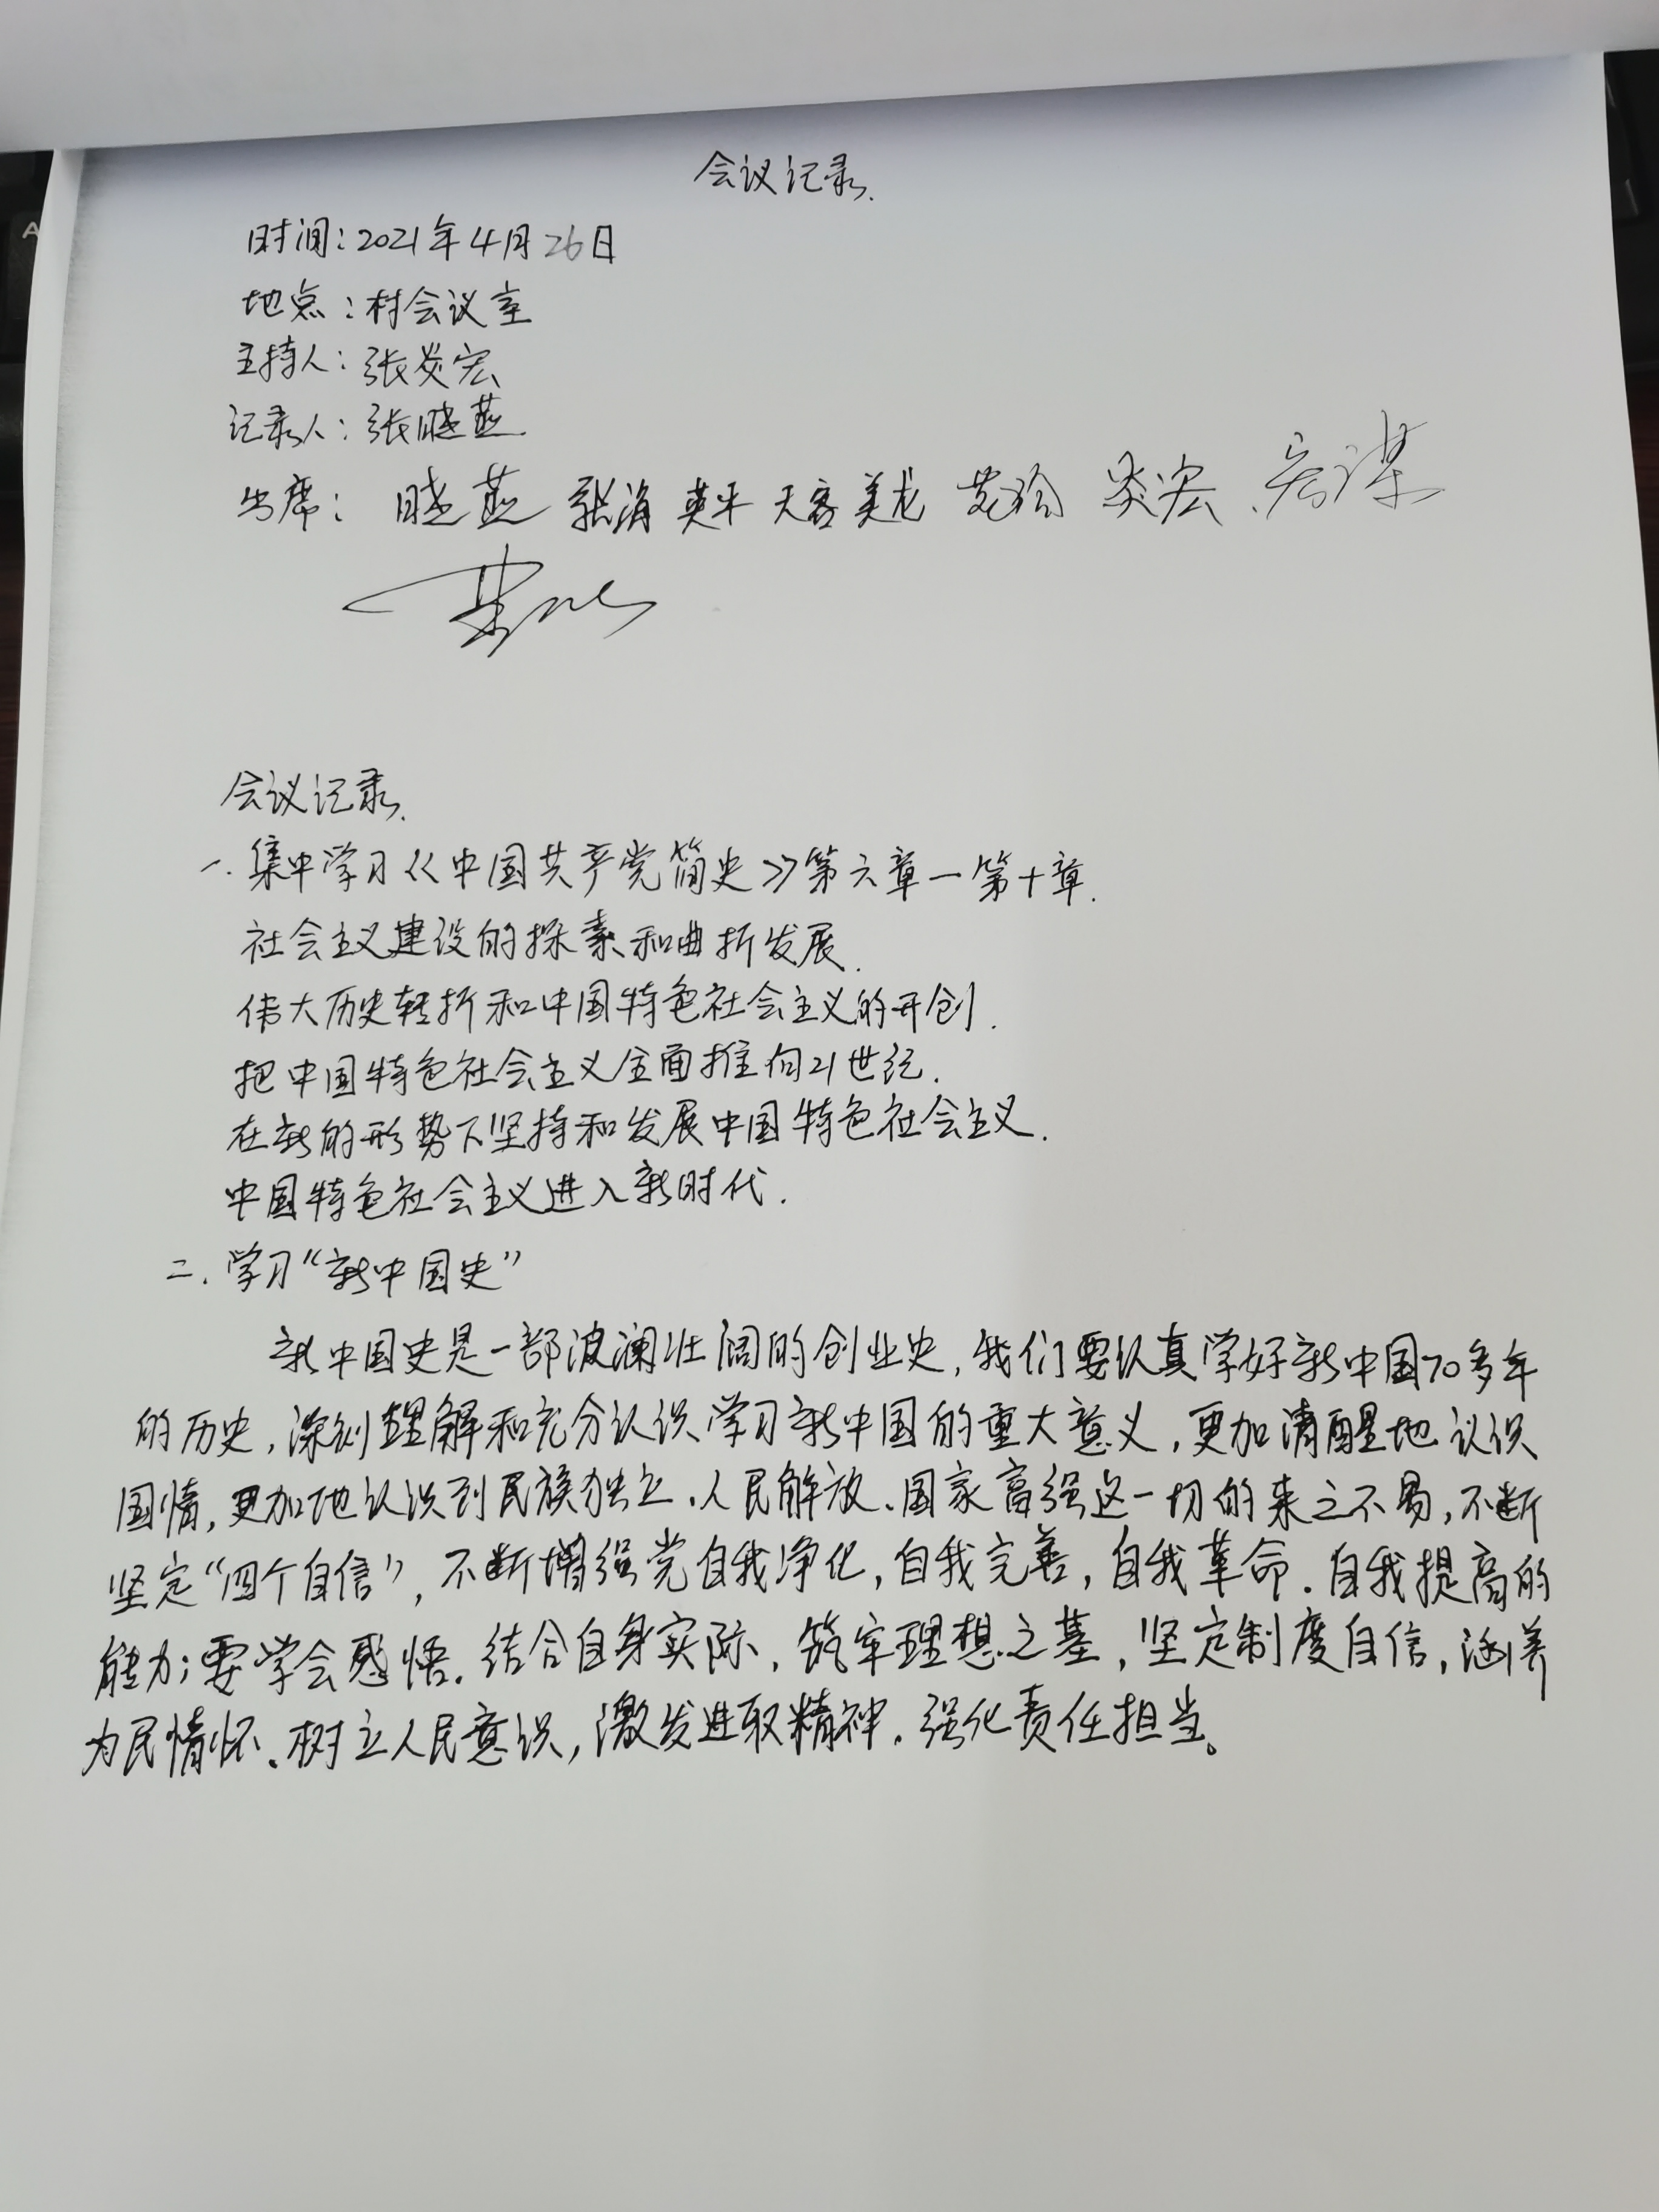 会议记录.
时间：2021年4月26日
地点：村会议室
主持人：张炎宏
记录人：张晓燕
出席：晓燕 张海 英平 天客 美龙 炎宏
会议记录.
一.集中学习《中国共产党简史》第六章一第十章.
社会主义建设的探索和曲折发展.
伟大历史转折和中国特色社会主义的开创.
把中国特色社会主义全面推向21世纪.
在新的形势下坚持和发展中国特色社会主义.
中国特色社会主义进入新时代.
二.学习“新中国史”
新中国史是一部波澜壮阔的创业史，我们要认真学好新中国70多年
的历史，深刻理解和充分认识学习新中国的重大意义，更加清醒地认识
国情，更加地认识到民族独立、人民解放、国家富强这一切的来之不易，不断
坚定“四个自信”，不断增强党自我净化，自我完善，自我革命.自我提高的
能力；要学会感悟.结合自身实际，筑牢理想之基，坚定制度自信，涵养
为民情怀.树立人民意识，激发进取精神.强化责任担当。
A